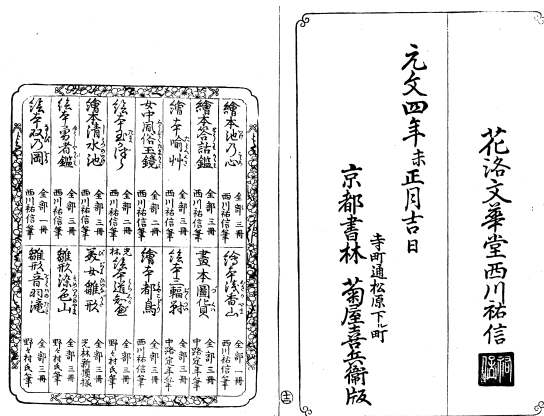 花洛文華堂西川祐信
祐信
元文四年未正月吉日
寺町通松原下ル町
京都書林 菊屋喜兵衛版
繪本池乃心 全部三冊 西川祐信筆
繪本答話鑑 全部三冊 西川祐信筆
繪本喩艸 全部三冊 西川祐信筆
女中風俗玉鏡 全部二冊 西川祐信筆
絵本玉かつら 全部三冊 西川祐信筆
繪本清水池 全部三冊 西川祐信筆
絵本勇者鑑 全部三冊 西川祐信筆
絵本双乃岡 全部三冊 西川祐信筆
絵本浅香山 全部一冊 西川祐信筆
畫本圖貨 全部三冊 中路定年筆
絵本三輻對 全部三冊 中路定年筆
繪本都鳥 全部三冊 西川祐信筆
光林絵本道知邊 全部三冊 野々村氏筆
美女雛形 全部三冊 光林新模様
雛形染色山 全部三冊 野々村氏筆
雛形音羽滝 全部三冊 野々村氏筆